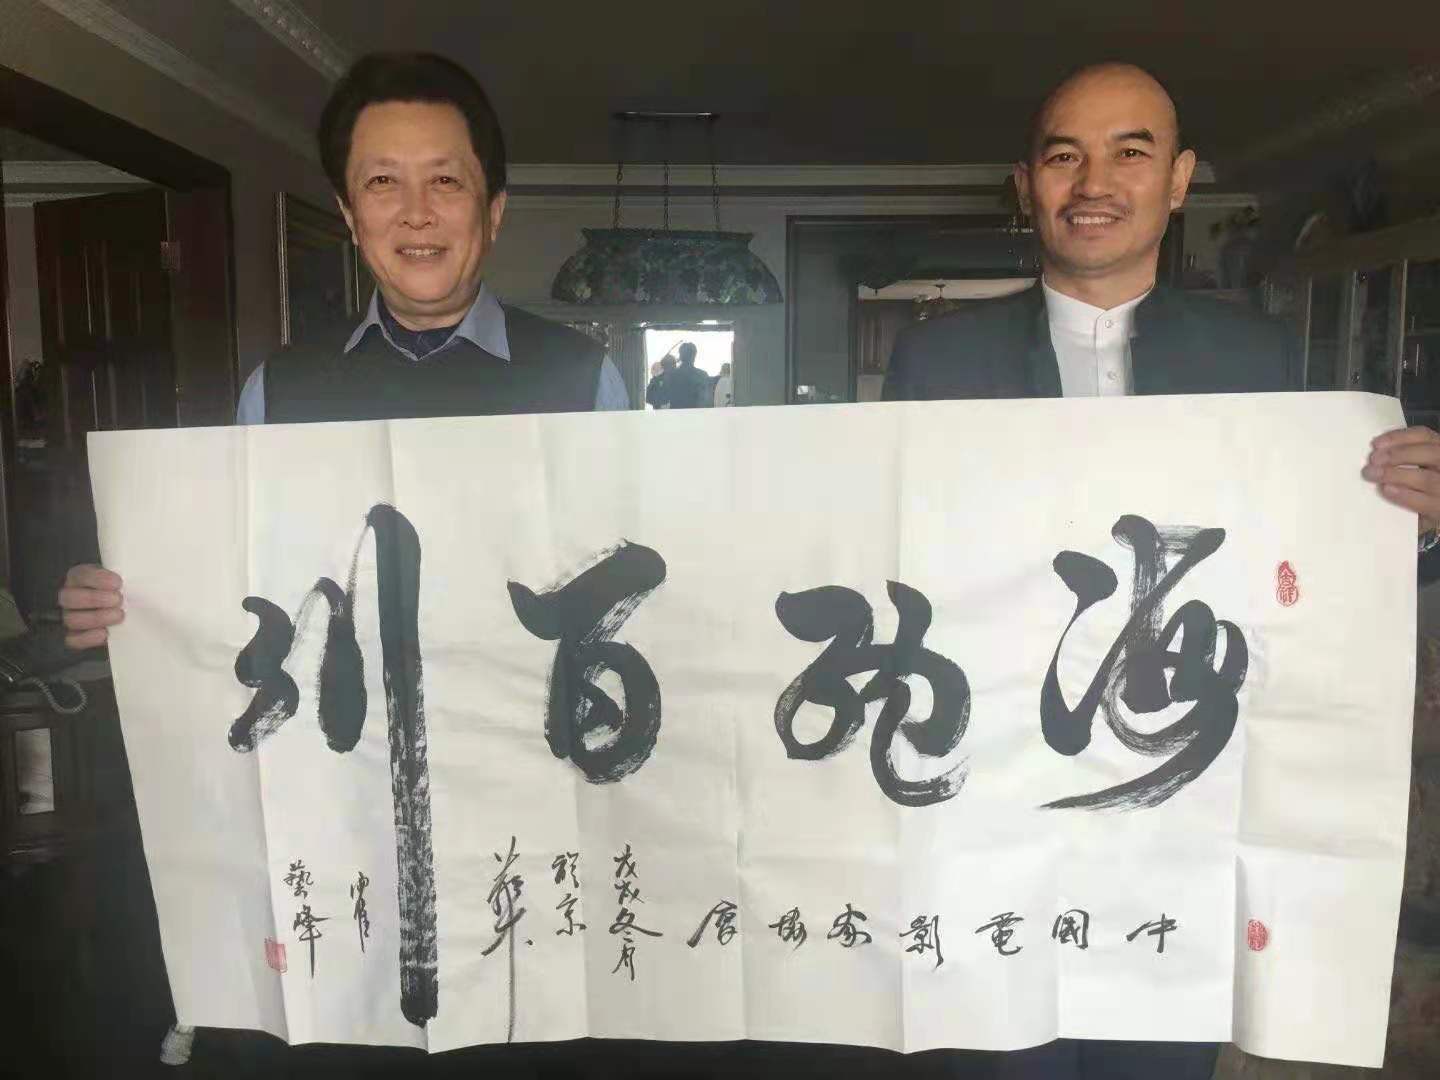 海纳百川
中國電影家協會
戊戌冬月
於京
華
藝峰